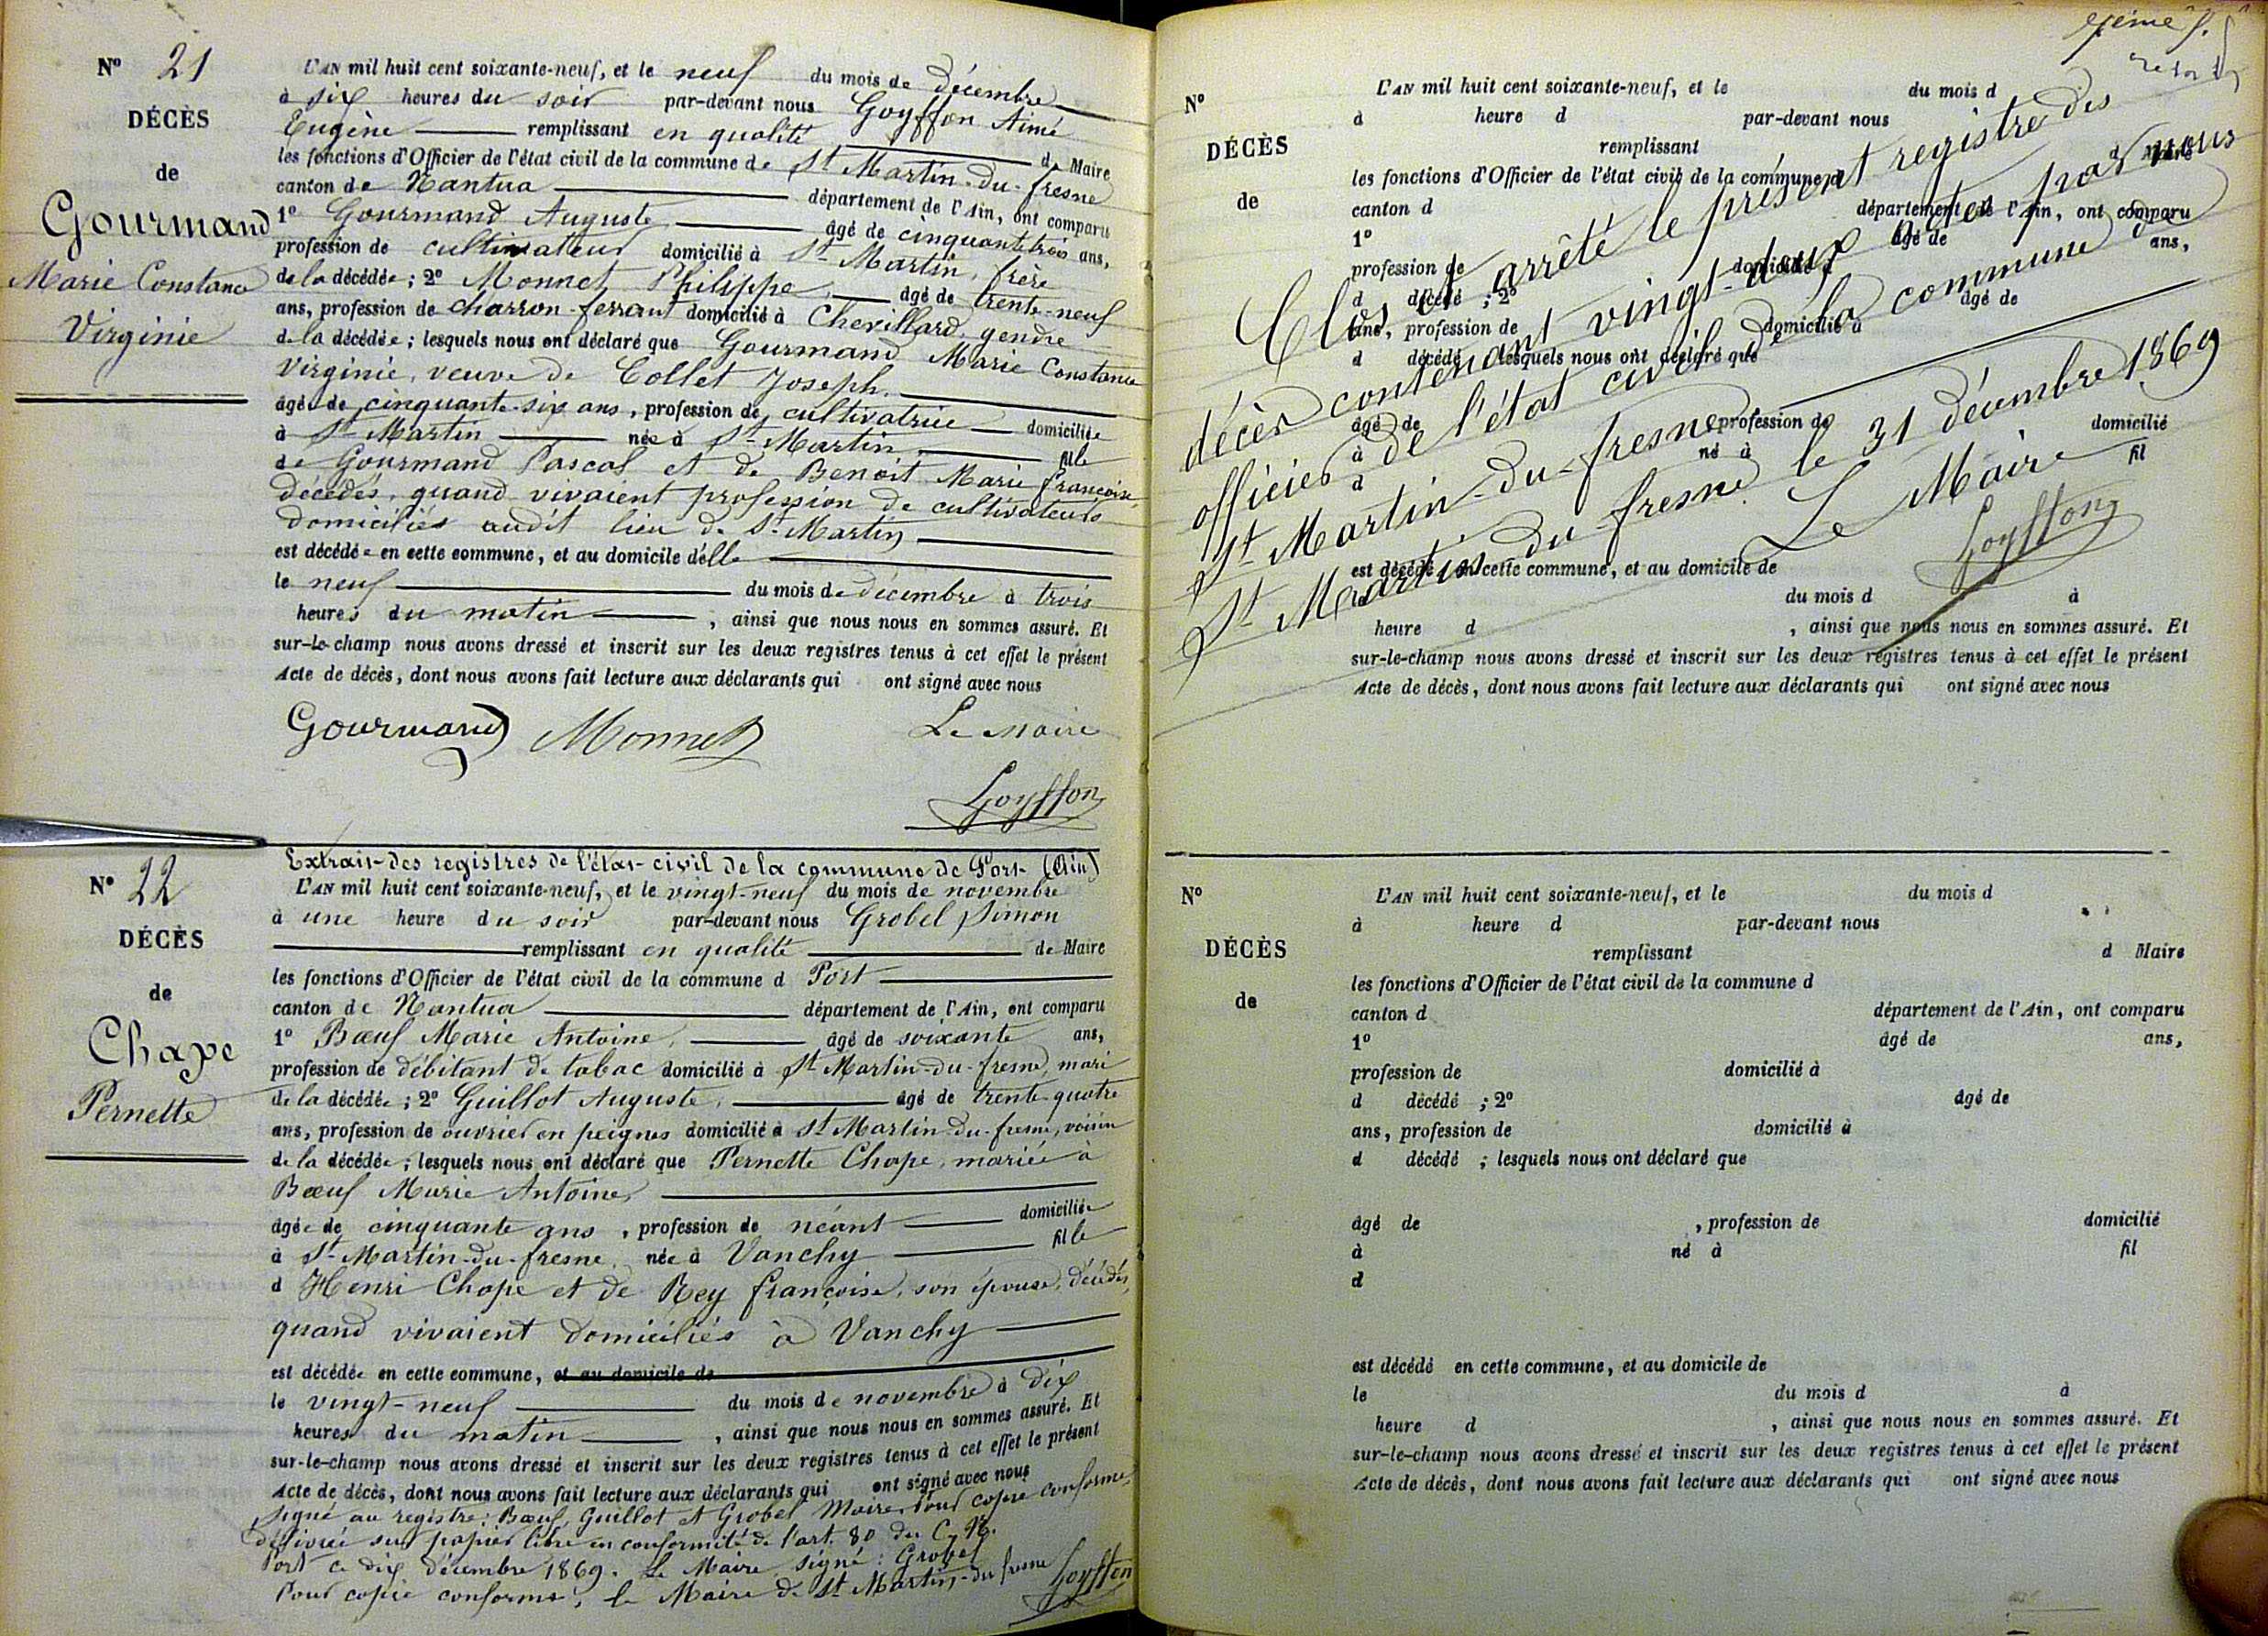 N° 21
DÉCÈS
de
Gourmand
Marie Constance
Virginie
L'AN mil huit cent soixante-neuf, et le neuf du mois de décembre
à six heures du soir par-devant nous Goyffon Aimé
Eugène remplissant en qualité de Maire
les fonctions d'Officier de l'état civil de la commune de St Martin-du-fresne
canton de Nantua département de l'Ain, ont comparu
1° Gourmand Auguste âgé de cinquante trois ans,
profession de cultivateur domicilié à St Martin, frère
de la décédée ; 2° Monnet Philippe, âgé de trente-neuf
ans, profession de charron-ferrant domicilié à Chevillard, gendre
de la décédée ; lesquels nous ont déclaré que Gourmand Marie Constance
Virginie, veuve de Collet Joseph,
âgée de cinquante-six ans, profession de cultivatrice domiciliée
à St Martin née à St Martin, fille
de Gourmand Pascal et de Benoit Marie françoise,
décédés, quand vivaient profession de cultivateurs
domiciliés audit lieu de St Martin
est décédée en cette commune, et au domicile d'elle
le neuf du mois de décembre à trois
heures du matin, ainsi que nous nous en sommes assuré. Et
sur-le-champ nous avons dressé et inscrit sur les deux registres tenus à cet effet le présent
Acte de décès, dont nous avons fait lecture aux déclarants qui ont signé avec nous
Gourmand Monnet Le Maire
Goyffon
N° 22
DÉCÈS
de
Chape
Pernette
Extrait des registres de l'état-civil de la commune de Port (Ain)
L'AN mil huit cent soixante-neuf, et le vingt-neuf du mois de novembre
à une heure du soir par-devant nous Grobel Simon
remplissant en qualité de Maire
les fonctions d'Officier de l'état civil de la commune d Port
canton de Nantua département de l'Ain, ont comparu
1° Bœuf Marie Antoine, âgé de soixante ans,
profession de débitant de tabac domicilié à St Martin-du-fresne, mari
de la décédée ; 2° Guillot Auguste, âgé de trente-quatre
ans, profession de ouvrier en peignes domicilié à St Martin-du-fresne, voisin
de la décédée ; lesquels nous ont déclaré que Pernette Chape, mariée à
Bœuf Marie Antoine,
âgée de cinquante ans, profession de néant domiciliée
à St Martin-du-fresne, née à Vanchy fille
d Henri Chape et de Rey françoise, son épouse, décédés,
quand vivaient domiciliés à Vanchy
est décédée en cette commune, et au domicile de
le vingt-neuf du mois de novembre à dix
heures du matin, ainsi que nous nous en sommes assuré. Et
sur-le-champ nous avons dressé et inscrit sur les deux registres tenus à cet effet le présent
Acte de décès, dont nous avons fait lecture aux déclarants qui ont signé avec nous
Signé au registre : Bœuf, Guillot et Grobel Maire. Pour copie conforme,
délivrée sur papier libre en conformité de l'art. 80 du C. N.
Port ce dix décembre 1869. Le Maire, signé : Grobel
Pour copie conforme, le Maire de St Martin-du fresne Goyffon
N°
DÉCÈS
de
L'AN mil huit cent soixante-neuf, et le du mois d
à heure d par-devant nous
remplissant d Maire
les fonctions d'Officier de l'état civil de la commune d
canton d département de l'Ain, ont comparu
1° âgé de ans,
profession de domicilié à
d décédé ; 2° âgé de
ans, profession de domicilié à
d décédé ; lesquels nous ont déclaré que
âgé de , profession de domicilié
à né à fil
d
est décédé en cette commune, et au domicile de
le du mois d à
heure d , ainsi que nous nous en sommes assuré. Et
sur-le-champ nous avons dressé et inscrit sur les deux registres tenus à cet effet le présent
Acte de décès, dont nous avons fait lecture aux déclarants qui ont signé avec nous
Clos et arrêté le présent registre des
décès contenant vingt-deux actes par nous
officier de l'état civil de la commune de
St Martin-du-fresne
St Martin du fresne le 31 décembre 1869
Le Maire
Goyffon
N°
DÉCÈS
de
L'AN mil huit cent soixante-neuf, et le du mois d
à heure d par-devant nous
remplissant d Maire
les fonctions d'Officier de l'état civil de la commune d
canton d département de l'Ain, ont comparu
1° âgé de ans,
profession de domicilié à
d décédé ; 2° âgé de
ans, profession de domicilié à
d décédé ; lesquels nous ont déclaré que
âgé de , profession de domicilié
à né à fil
d
est décédé en cette commune, et au domicile de
le du mois d à
heure d , ainsi que nous nous en sommes assuré. Et
sur-le-champ nous avons dressé et inscrit sur les deux registres tenus à cet effet le présent
Acte de décès, dont nous avons fait lecture aux déclarants qui ont signé avec nous